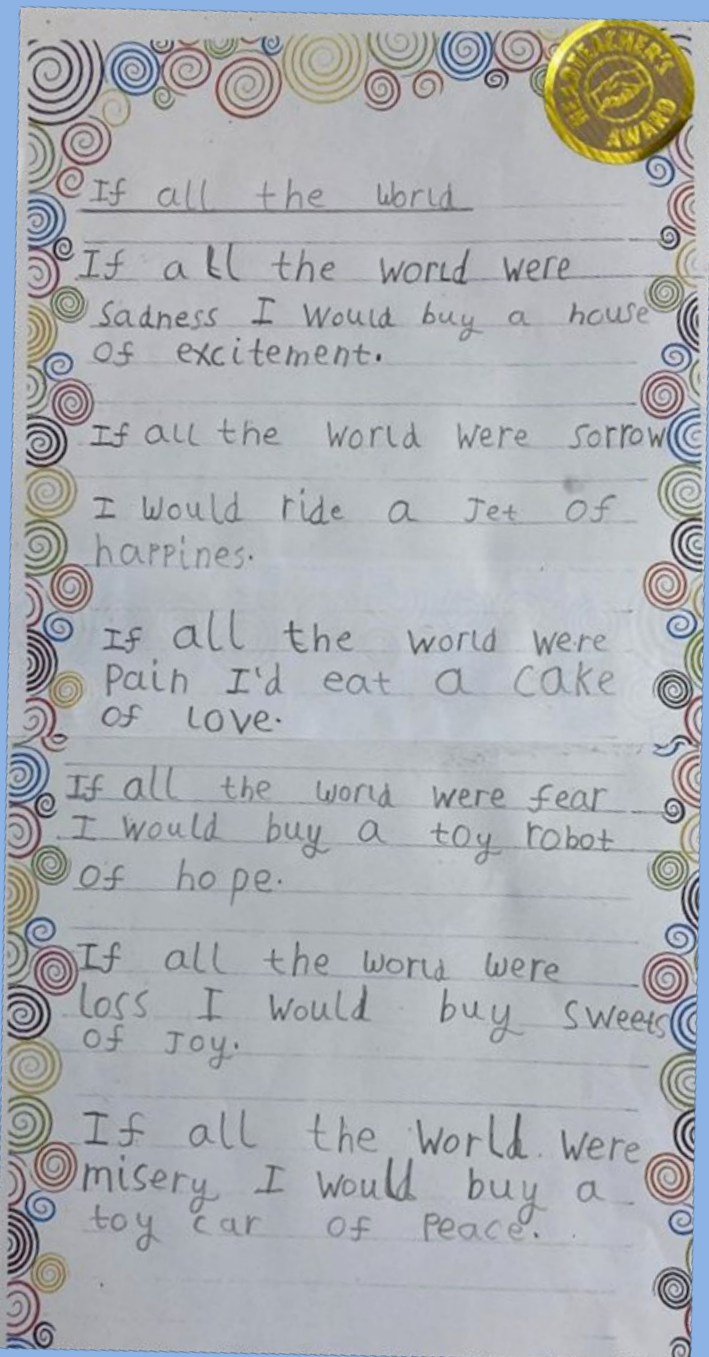 HEADTEACHER'S
AWARD
If all the world
If all the world were
Sadness I Would buy a house
of excitement.
If all the world were sorrow
I would ride a Jet of
happines.
If all the world were
Pain I'd eat a cake
of love.
If all the world were fear
I would buy a toy robot
of hope.
If all the world were
loss I would buy sweets
of Joy.
If all the world were
misery I would buy a
toy car of Peace.